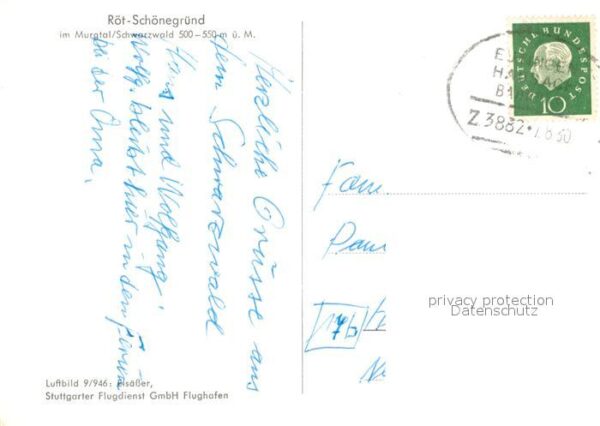 Röt-Schönegründ
im Murgtal/Schwarzwald 500-550 m ü. M.
Herzliche Grüsse aus
dem Schwarzwald
Hans und Wolfgang
Wolfg. bleibt hier in den Ferien
bei der Oma.
Luftbild 9/946: Elsäßer,
Stuttgarter Flugdienst GmbH Flughafen
DEUTSCHE BUNDESPOST
10
Z 3882
Fam
Pau
17b
privacy protection
Datenschutz